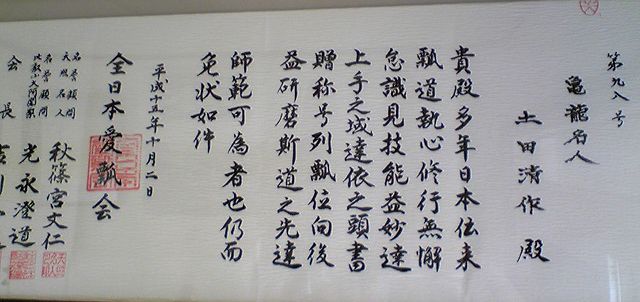 第九八号
亀龍名人
土田清作 殿
貴殿多年日本伝来
瓢道執心修行無懈
怠識見技能益妙達
上手之域達依之頭書
贈称号列瓢位向後
益研磨斯道之先達
師範可為者也仍而
免状如件
平成十五年十月二日
全日本愛瓢会
秋篠宮文仁
名誉顧問
光永澄道
会長